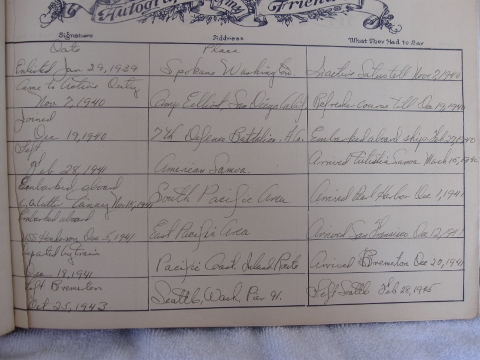 Autographs of My Friends
Signature Address What They Had to Say
Date Place
Enlisted Jan 29, 1939 Spokane Washington Inactive Status till Nov 7, 1940
Came to Active Duty
Nov 7, 1940 Camp Elliott San Diego Calif Refresher course till Dec 19, 1940
Joined
Dec 19, 1940 7th Defense Battalion, Embarked aboard ship Feb 27, 1940
Left Arrived Samoa March 15, 1940
Feb 28, 1941 American Samoa
Embarked aboard
Nov 15, 1941 South Pacific Area Arrived Pearl Harbor Dec 1, 1941
Embarked aboard
USS Henderson Dec 5, 1941 East Pacific Area Arrived San Francisco Dec 12, 1941
by train
18, 1941 Pacific Coast, Inland Route Arrived Bremerton Dec 20, 1941
Left Bremerton
Oct 25, 1943 Seattle, Wash. Pier 91. Left Seattle Feb 28, 1945